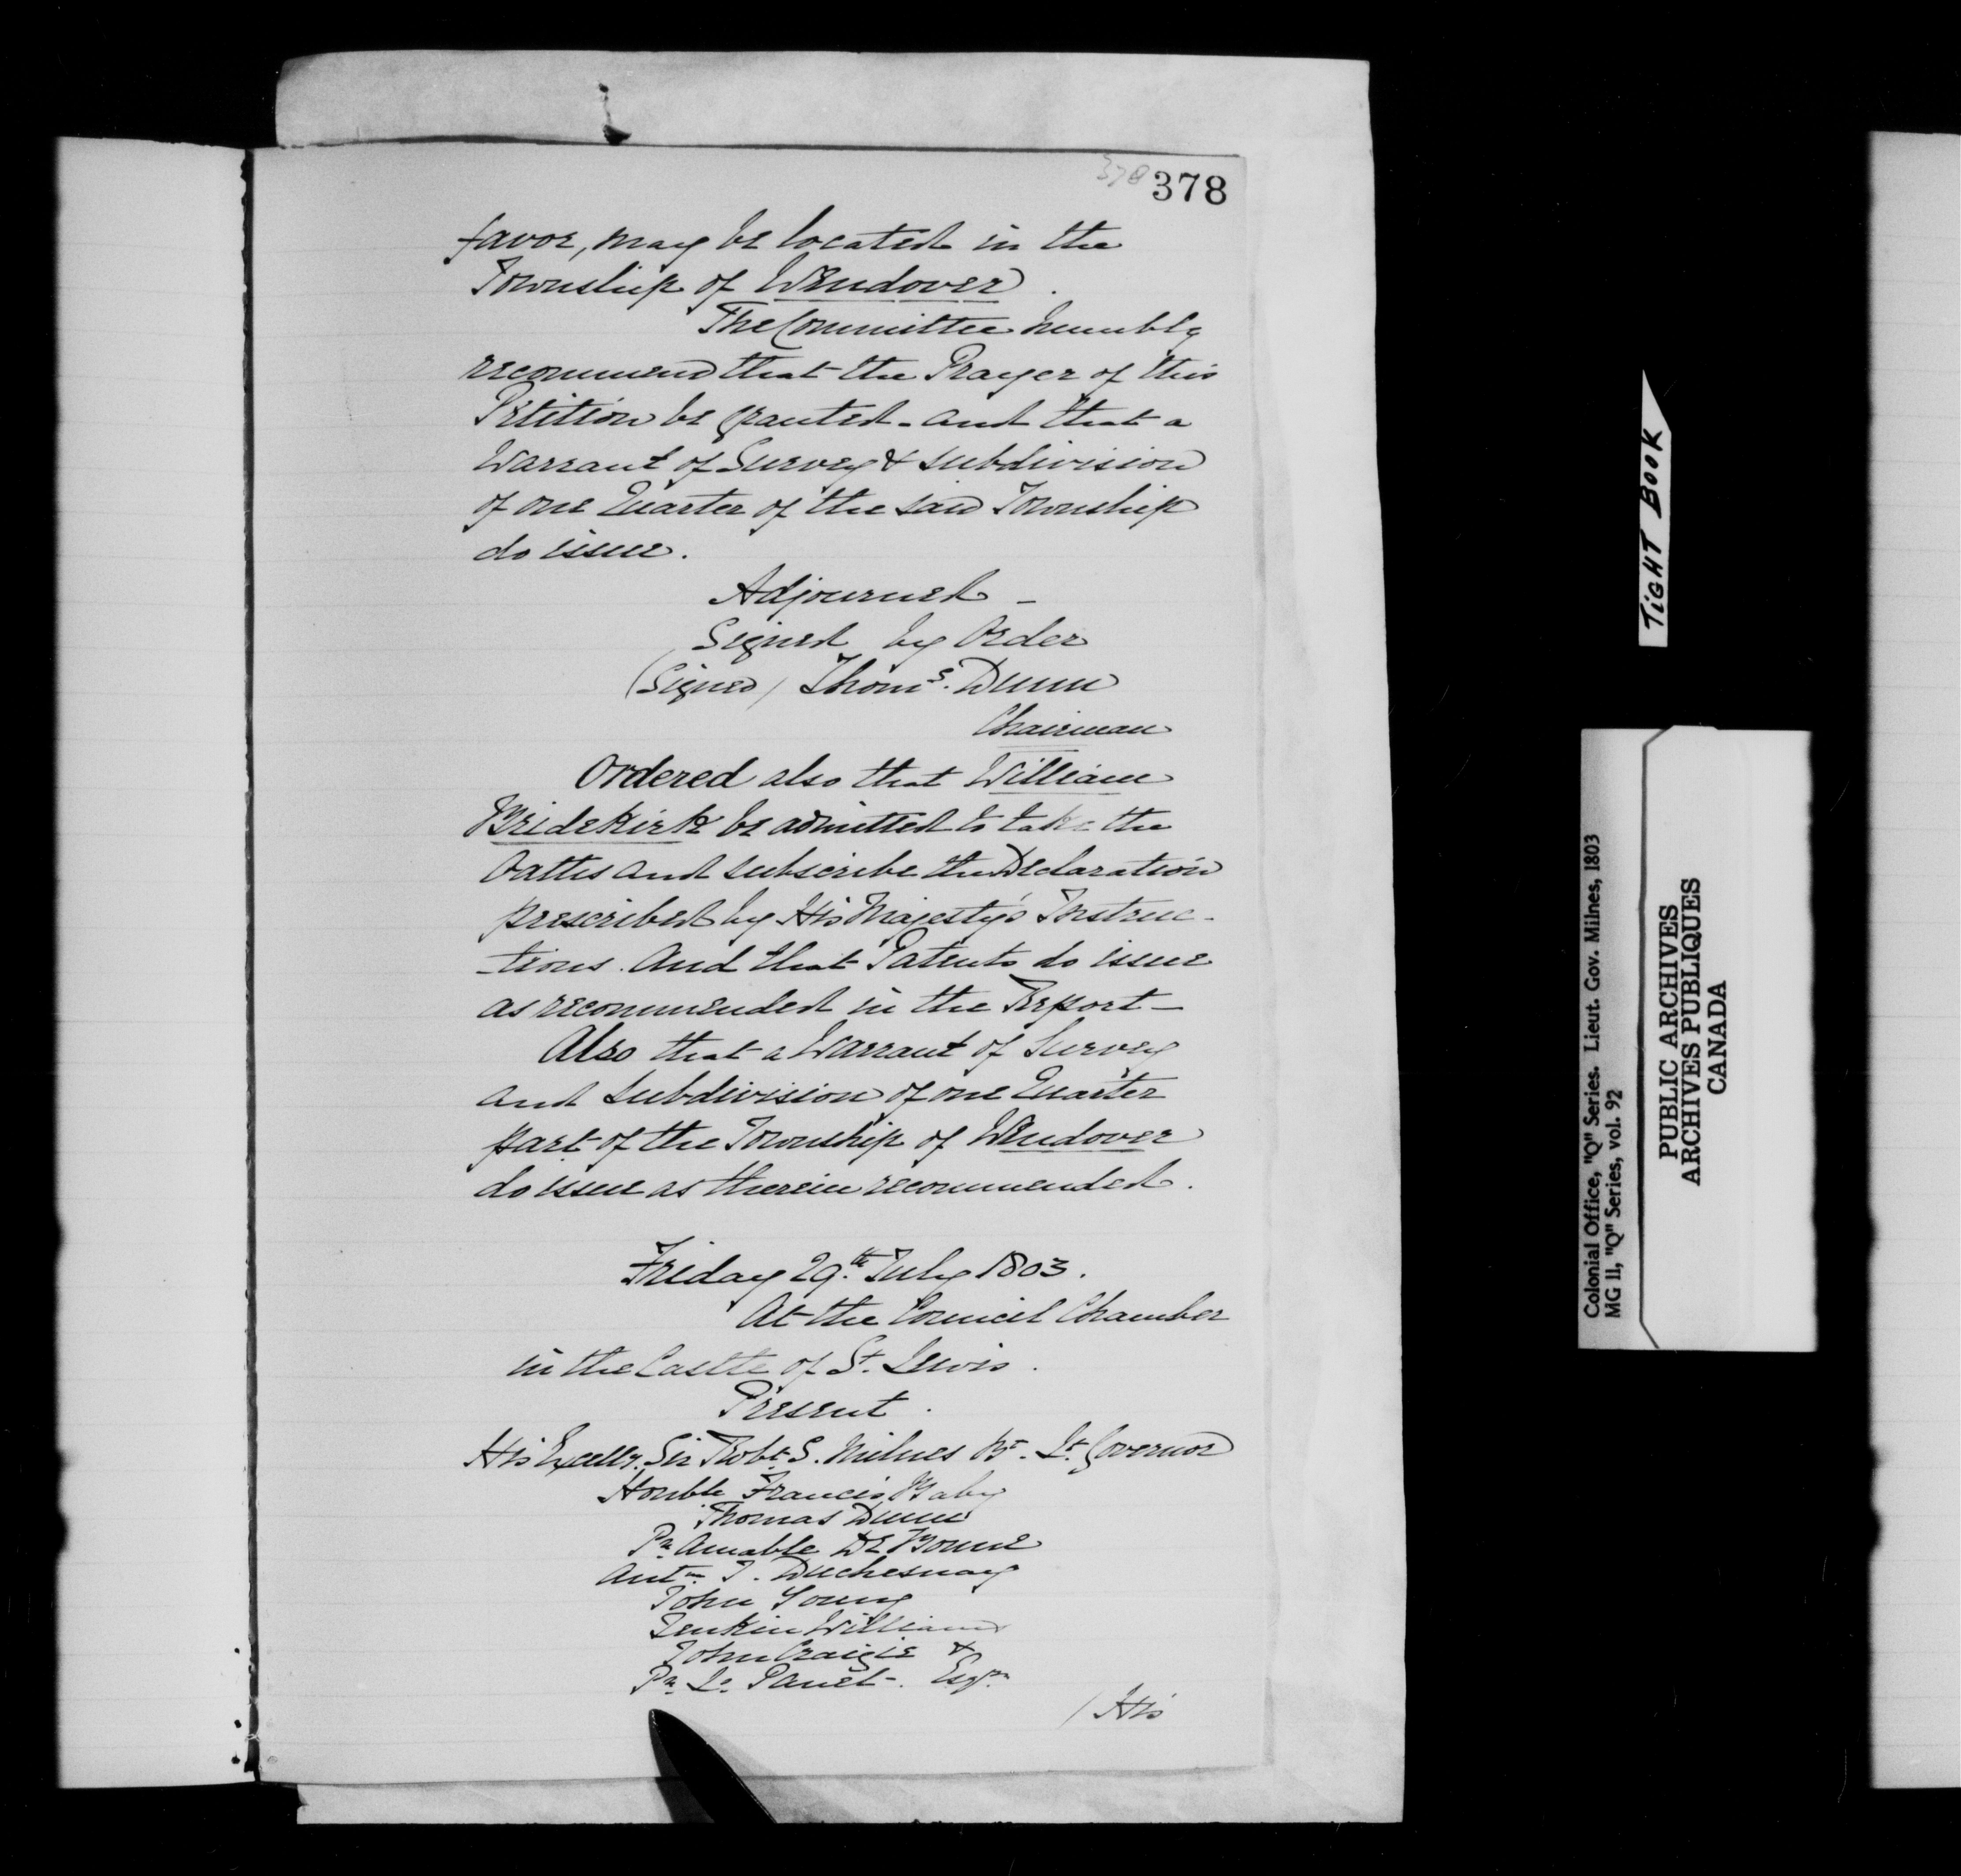 378 378
favor, may be located in the
Township of Wendover.
The Committee humbly
recommend that the Prayer of this
Petition be granted - and that a
Warrant of Survey & subdivision
of one Quarter of the said Township
do issue.
Adjourned -
Signed by Order
(Signed) Thoms. Dunn
Chairman
Ordered also that William
Bridekirk be admitted to take the
Oaths and subscribe the Declaration
prescribed by His Majesty's Instruc-
-tions. And that Patents do issue
as recommended in the Report -
Also that a Warrant of Survey
and Subdivision of one Quarter
part of the Township of Wendover
do issue as therein recommended.
Friday 29th. July 1803.
At the Council Chamber
in the Castle of St. Lewis.
Present.
His Excelly. Sir Robt. S. Milnes Bt. Lt. Governor
Honble Francis Baby
Thomas Dunn
Pre. Amable De Bonne
Antne. J. Duchesnay
John Young
Jenkin Williams
John Craigie &
Pre. Ls. Panet -. Esqrs.
/ His
TIGHT BOOK
Colonial Office, "Q" Series. Lieut. Gov. Milnes, 1803
MG 11, "Q" Series, vol. 92
PUBLIC ARCHIVES
ARCHIVES PUBLIQUES
CANADA